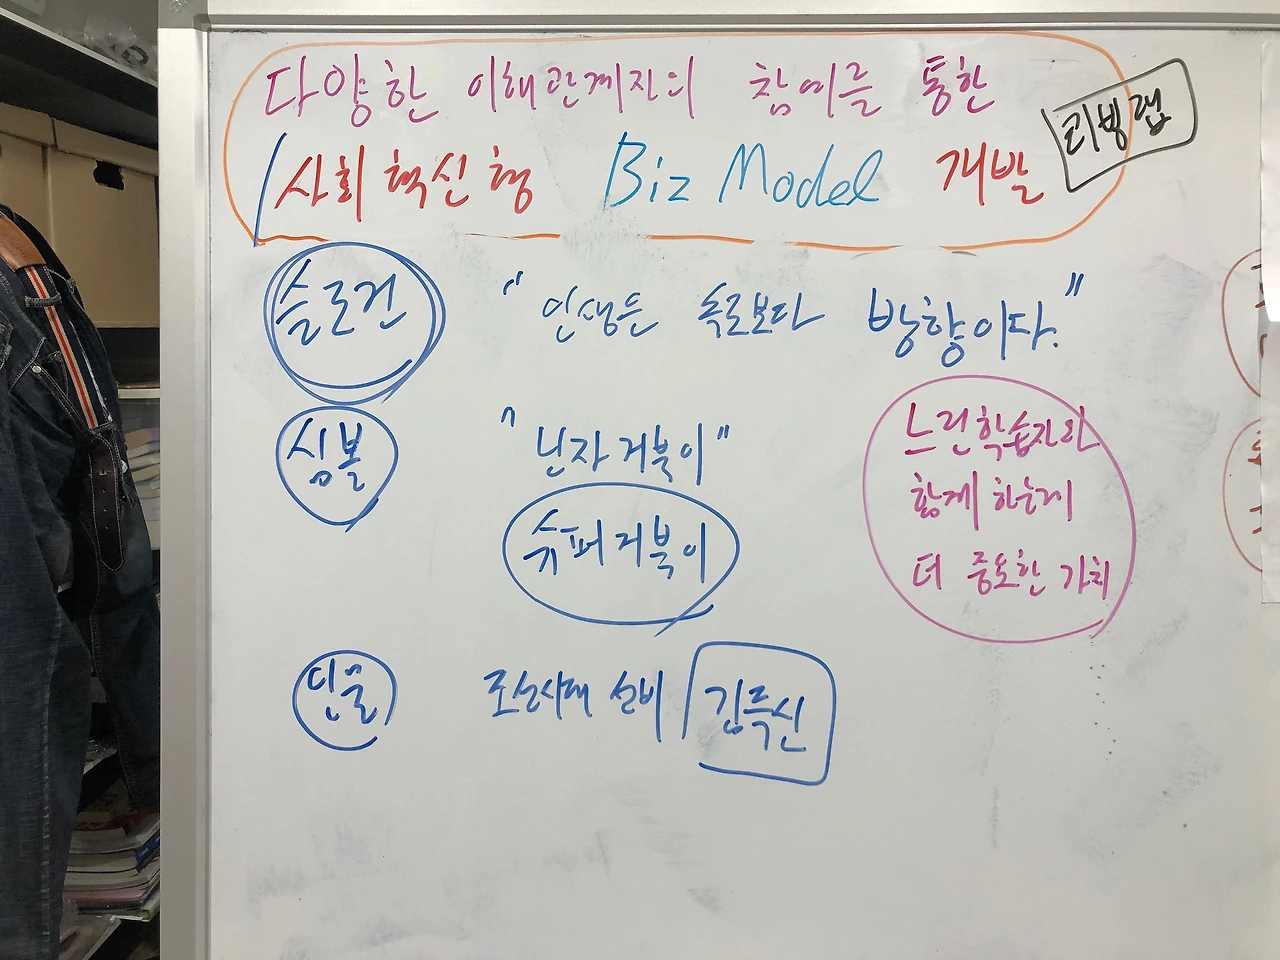 다양한 이해관계자의 참여를 통한
사회혁신형 Biz Model 개발
리빙랩
슬로건 "인생은 속도보다 방향이다."
심볼 "닌자거북이"
슈퍼거북이
느린학습자와
함께 하는게
더 중요한 가치
인물 조선시대 선비 김득신